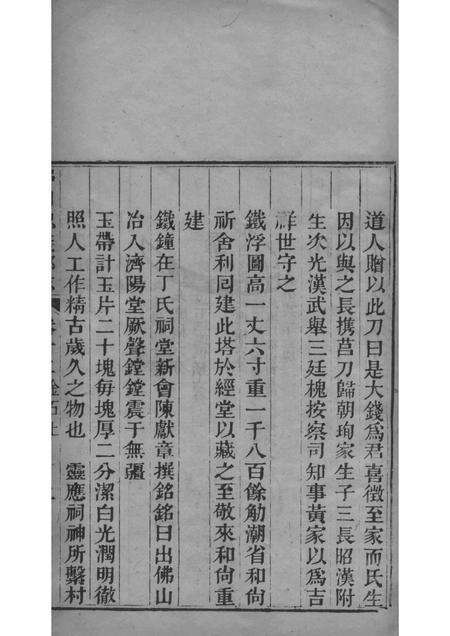 道人贈以此刀曰是大錢爲君喜徵至家而氏生
因以與之長携莒刀歸朝珣家生子三長昭漢附
生次光漢武舉三廷槐按察司知事黃家以爲吉
祥世守之
鐵浮圖高一丈六寸重一千八百餘觔潮省和尙
祈舍利囘建此塔於經堂以藏之至敬來和尙重
建
鐵鐘在丁氏祠堂新會陳獻章撰銘銘曰出佛山
冶入濟陽堂厥聲鏜鏜震于無疆
玉帶計玉片二十塊每塊厚二分潔白光潤明徹
照人工作精古歲久之物也 靈應祠神所繫村